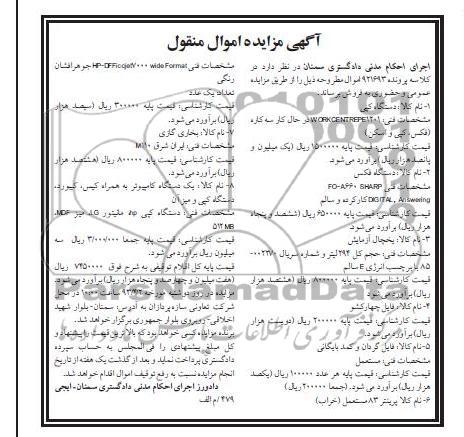 آگهی مزایده اموال منقول
اجرای احکام مدنی دادگستری سمنان در نظر دارد در
کلاسه پرونده ۹۲۱۶۹۳ اموال مطروحه ذیل را از طریق مزایده
عمومی و حضوری به فروش برساند.
۱- نام کالا: دستگاه کپی
مشخصات فنی: WORKCENTREPE۱۲۰۱ در حال کار سه کاره
(فکس، کپی و اسکن)
قیمت کارشناسی: قیمت پایه ۱۵۰۰۰۰۰ ریال (یک میلیون و
پانصد هزار ریال) برآورد می‌شود.
۲- نام کالا: دستگاه فکس
مشخصات فنی: FO-A۶۶۰ SHARP
DIGITAL, Answering کارکرده و سالم
قیمت کارشناسی: قیمت پایه ۶۵۰۰۰۰ ریال (ششصد و پنجاه
هزار ریال) برآورد می‌شود.
۳- نام کالا: یخچال آزمایش
مشخصات فنی: حجم کل ۲۹۴ لیتر و شماره سریال ۰۰۰۲۲۷۰-
۸۵ با برچسب انرژی E سالم
قیمت کارشناسی: قیمت پایه ۸۰۰۰۰۰ ریال (هشتصد هزار
ریال) برآورد می‌شود.
۴- نام کالا: فایل چهارکشو
قیمت کارشناسی: قیمت پایه ۲۰۰۰۰۰ ریال (دویست هزار
ریال) برآورد می‌شود.
۵- نام کالا: فایل گردان و کمد بایگانی
مشخصات فنی: مستعمل
قیمت کارشناسی: قیمت پایه هر عدد ۱۰۰۰۰۰ ریال (یکصد
هزار ریال) برآورد می‌شود. (جمعا ۲۰۰۰۰۰ ریال)
۶- نام کالا: پرینتر ۸۳ مستعمل (خراب)
مشخصات فنی: HP-DFFicojet۷۰۰۰ wide Format جوهرافشان
رنگی
تعداد: یک عدد
قیمت کارشناسی: قیمت پایه ۳۰۰۰۰۰ ریال (سیصد هزار
ریال) برآورد می‌شود.
۷- نام کالا: بخاری گازی
مشخصات فنی: ایران شرق M۱۱۰
قیمت کارشناسی: قیمت پایه ۸۰۰۰۰۰ ریال (هشتصد هزار
ریال) برآورد می‌شود.
۸- نام کالا: یک دستگاه کامپیوتر به همراه کیس، کیبورد،
دستگاه کپی و میز آن
مشخصات فنی: دستگاه کپی hp، مانیتور LG، میز MDF،
۵۱۲ MB
قیمت کارشناسی: قیمت پایه جمعا ۳/۰۰۰/۰۰۰ ریال سه
میلیون ریال برآورد می‌شود.
قیمت پایه کل اقلام توقیفی به شرح فوق ۷۴۵۰۰۰۰ ریال
(هفت میلیون و چهارصد و پنجاه هزار ریال) برآورد می‌شود.
مزایده در روز دوشنبه مورخه ۹۳/۴/۲ ساعت ۱۰:۰۰ در محل
شرکت تعاونی سازه پردازان به آدرس: سمنان- بلوار شهید
اخلاقی- روبروی بلوار جمهوری برگزار خواهد شد.
برنده مزایده کسی خواهد بود که بالاترین قیمت را پیشنهاد و
کل مبلغ پیشنهادی را فی‌المجلس به حساب سپرده
دادگستری پرداخت نماید و بعد از گذشت یک هفته از تاریخ
انجام مزایده نسبت به رفع توقیف اموال اقدام خواهد شد.
دادورز اجرای احکام مدنی دادگستری سمنان- ایجی
۴۷۹ / م الف